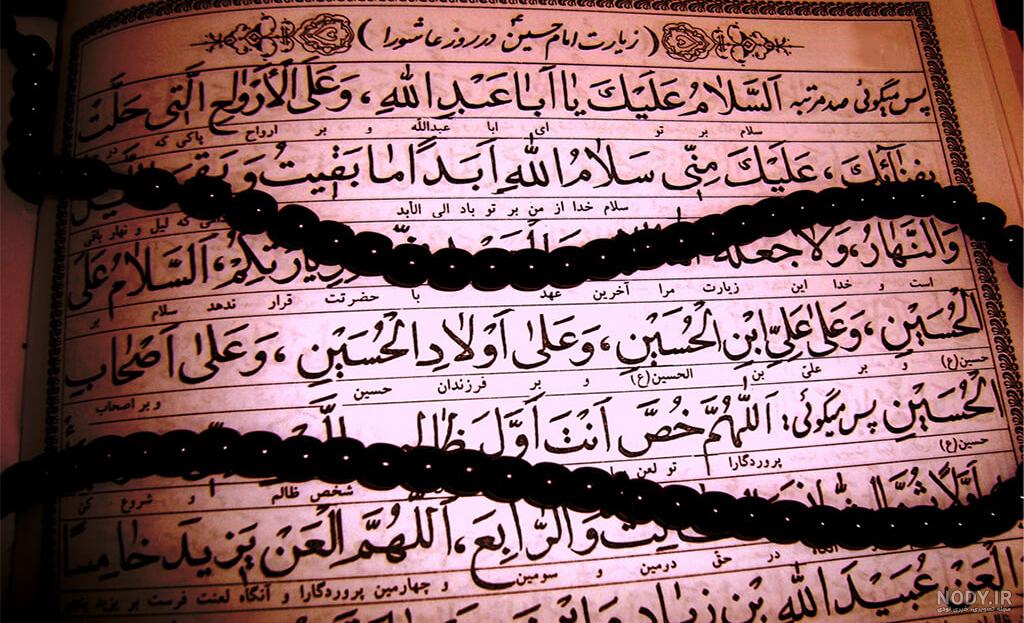 ( زیارت امام حسین ع در روز عاشورا )
پس میگوئی صد مرتبه اَلسَّلامُ عَلَیْكَ یا اَبا عَبْدِ اللهِ ، وَعَلَی الْاَرْواحِ الَّتی حَلَّتْ
سلام بر تو ای ابا عبدالله و بر ارواح پاکی که در
بِفِنائِكَ ، عَلَیْكَ مِنّی سَلامُ اللهِ اَبَداً ما بَقیتُ وَ بَقِیَ
سلام خدا از من بر تو باد الی الأبد که لیل و نهار باقی
وَالنَّهارُ ، وَلا جَعَلَهُ لِزِیارَتِکُمْ ، اَلسَّلامُ عَلَی
است و خدا این زیارت مرا آخرین عهد با حضرتت قرار ندهد سلام بر
الْحُسَیْنِ ، وَعَلی عَلِیِّ ابْنِ الْحُسَیْنِ ، وَعَلی اَوْلادِ الْحُسَیْنِ ، وَعَلی اَصْحابِ
حسین(ع) و بر علیّ بن الحسین(ع) و بر فرزندان حسین و بر اصحاب
الْحُسَیْنِ پس میگوئی: اَللّهُمَّ خُصَّ اَنْتَ اَوَّلَ
حسین(ع) پروردگارا تو لعن
شخص ظالم و شروع کن
وَالرّابِعَ ، اَللّهُمَّ الْعَنْ یَزیدَ خامِساً
در حقّ دومین و سومین و چهارمین پروردگارا و آنگاه لعنت فرست بر یزید پنجم
الْعَنْ عُبَیْدَ اللهِ بْنَ زِیادٍ وَابْنَ
NODY.IR